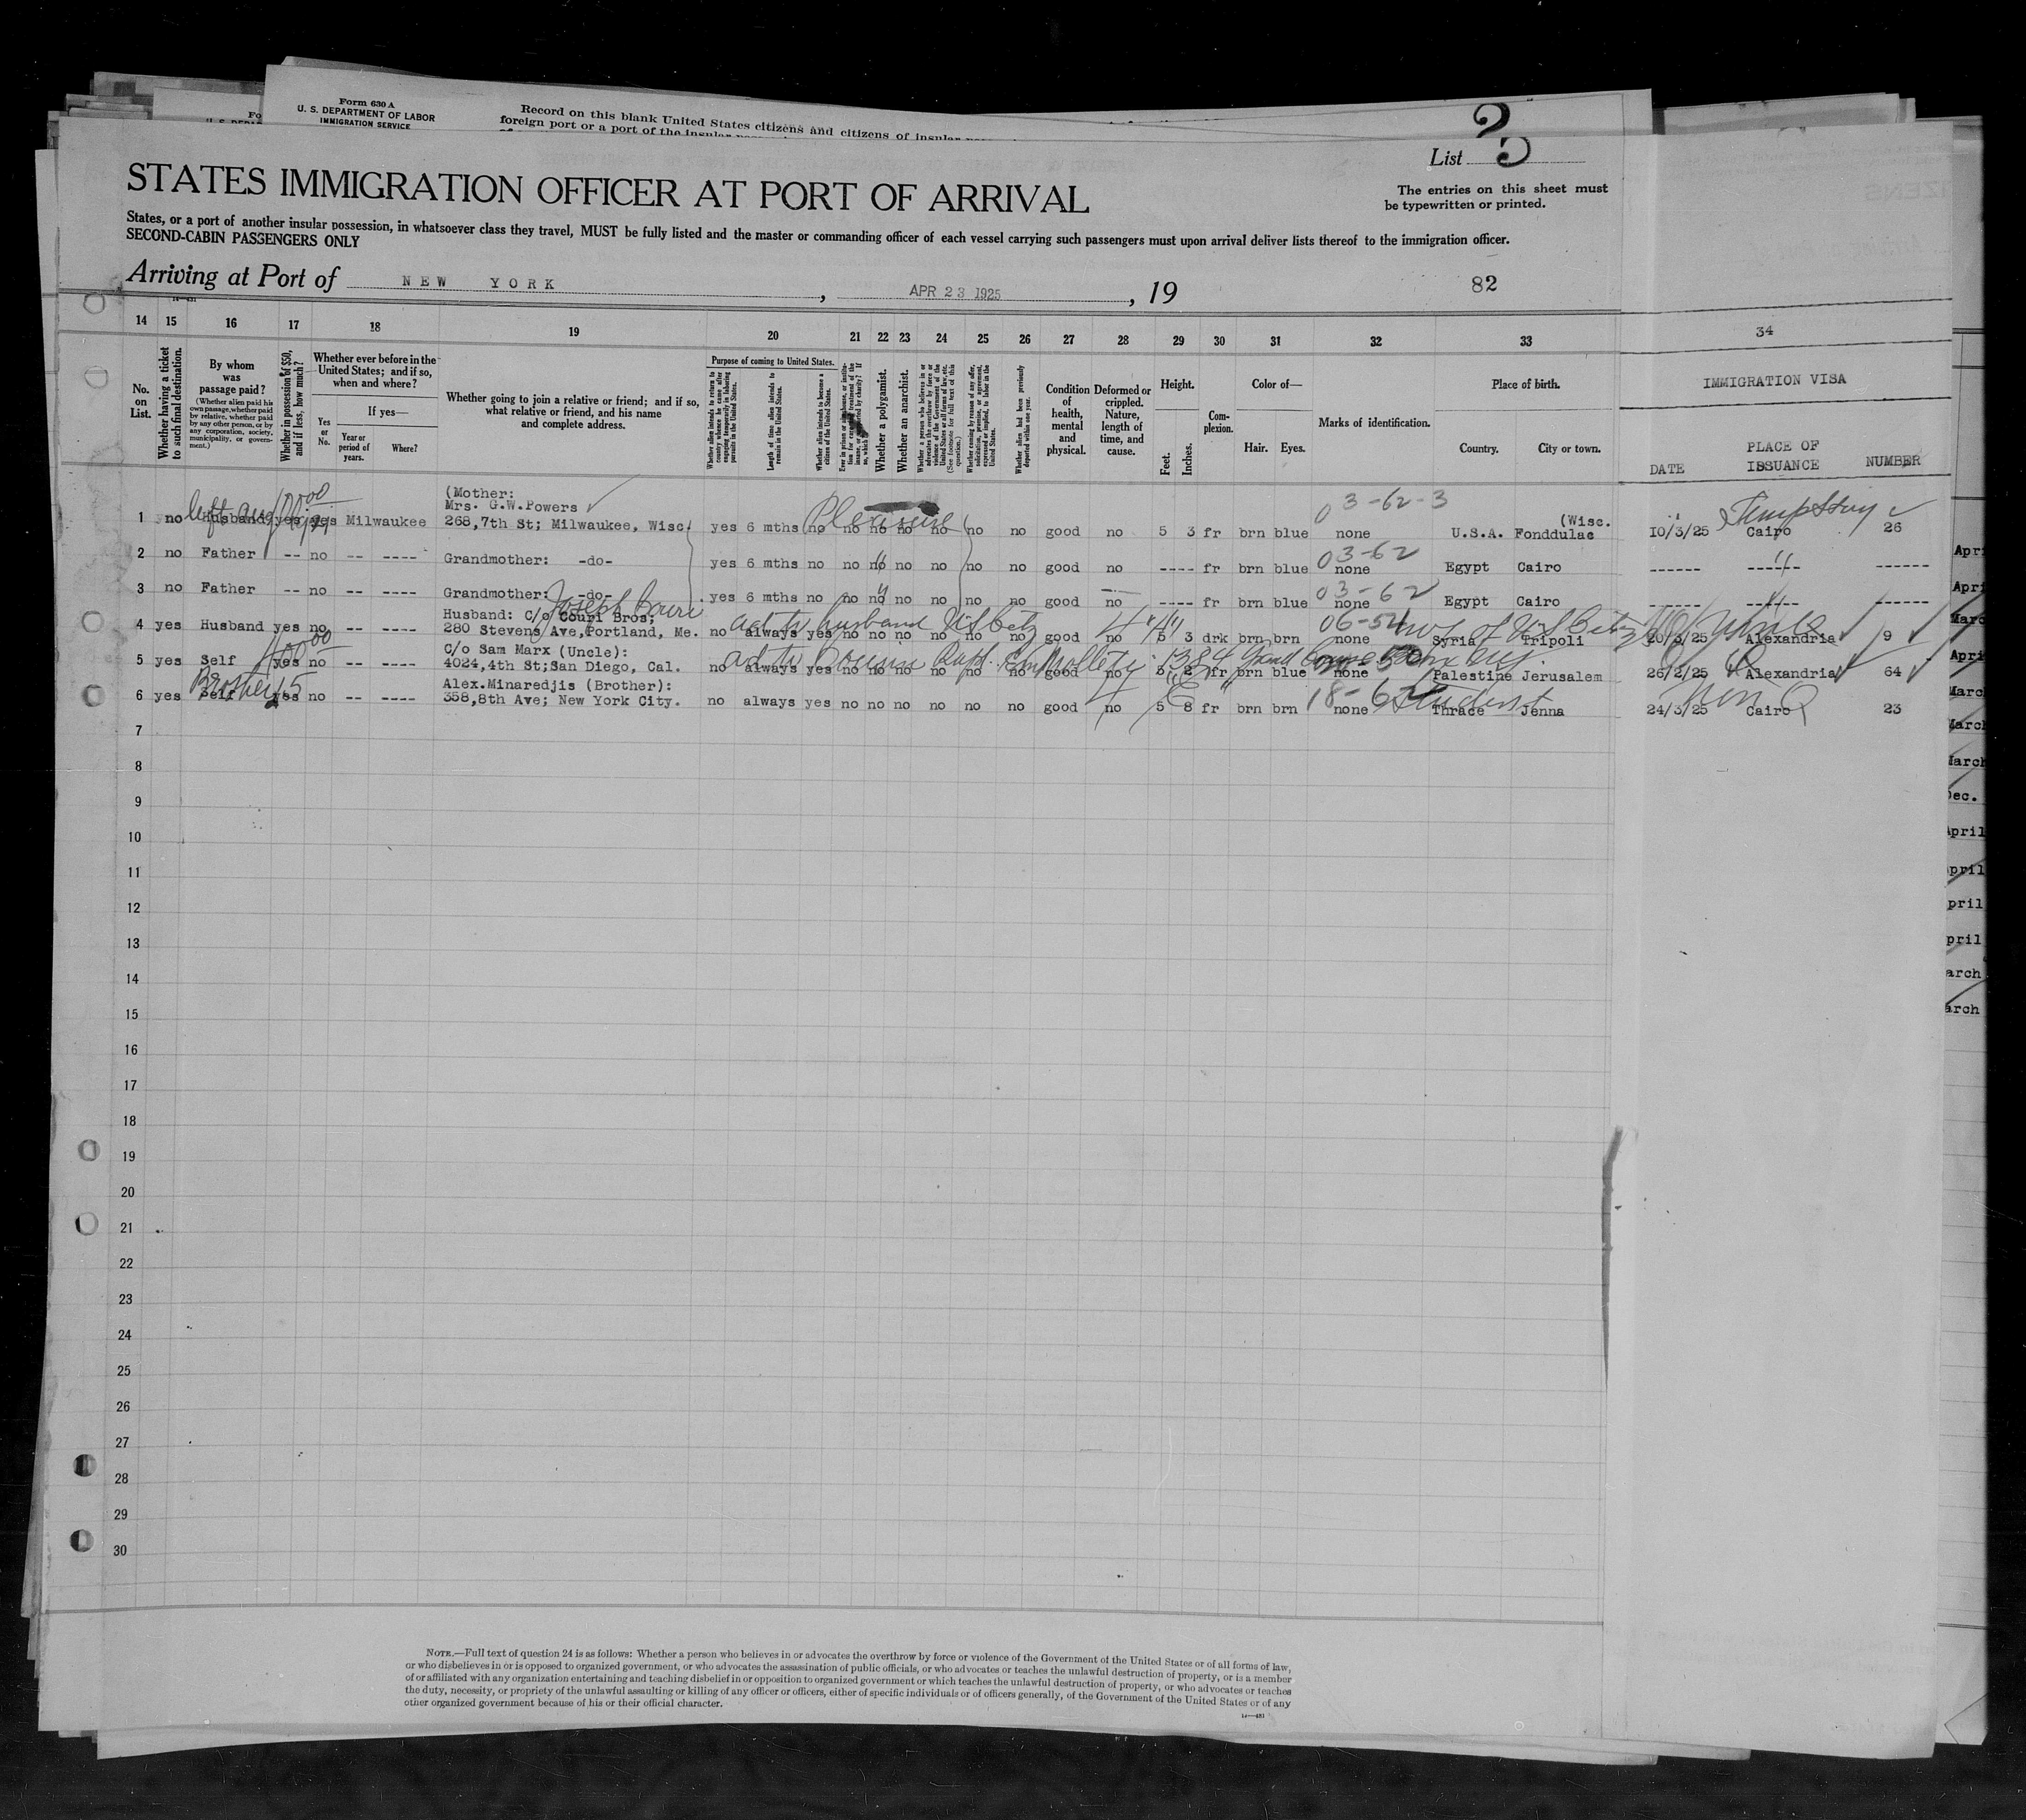 Form 630 A
U. S. DEPARTMENT OF LABOR
IMMIGRATION SERVICE
Record on this blank United States citizens and citizens of insular
foreign port or a port of the insular
List 3
STATES IMMIGRATION OFFICER AT PORT OF ARRIVAL
The entries on this sheet must
be typewritten or printed.
States, or a port of another insular possession, in whatsoever class they travel, MUST be fully listed and the master or commanding officer of each vessel carrying such passengers must upon arrival deliver lists thereof to the immigration officer.
SECOND-CABIN PASSENGERS ONLY
Arriving at Port of NEW YORK, APR 23 1925, 19
82
14 15 16 17 18 19 20 21 22 23 24 25 26 27 28 29 30 31 32 33 34
No. on List.
Whether having a ticket to such final destination.
By whom was passage paid?
(Whether alien paid his own passage, whether paid by relative, whether paid by any other person, or by any corporation, society, municipality, or government.)
Whether in possession of $50, and if less, how much?
Whether ever before in the United States; and if so, when and where?
Yes or No.
If yes—
Year or period of years.
Where?
Whether going to join a relative or friend; and if so, what relative or friend, and his name and complete address.
Purpose of coming to United States.
Whether alien intends to return to country whence he came after engaging temporarily in laboring pursuits in the United States.
Length of time alien intends to remain in the United States.
Whether alien intends to become a citizen of the United States.
Whether a polygamist.
Whether an anarchist.
Whether alien had been previously deported within one year.
Condition of health, mental and physical.
Deformed or crippled. Nature, length of time, and cause.
Height.
Feet. Inches.
Complexion.
Color of—
Hair. Eyes.
Marks of identification.
Place of birth.
Country. City or town.
IMMIGRATION VISA
DATE PLACE OF ISSUANCE NUMBER
(Mother:
Mrs. G.W.Powers
1 no Husband yes yes Milwaukee 268,7th St; Milwaukee, Wisc. yes 6 mths no no no no no no no good no 5 3 fr brn blue none U.S.A. Fonddulac (Wisc. 10/3/25 Cairo 26
Pleasure
03-62-3
2 no Father -- no -- ---- Grandmother: -do- yes 6 mths no no no no no no no good no ---- fr brn blue none Egypt Cairo ------ ------ ------
03-62
3 no Father -- no -- ---- Grandmother: -do- yes 6 mths no no no no no no no good no ---- fr brn blue none Egypt Cairo ------ ------ ------
03-62
Joseph
Husband: C/o Couri Bros;
4 yes Husband yes no -- ---- 280 Stevens Ave,Portland, Me. no always yes no no no no no no good no 5 3 drk brn brn none Syria Tripoli 20/3/25 Alexandria 9
husband
06-54
C/o Sam Marx (Uncle):
5 yes Self yes no -- ---- 4024,4th St;San Diego, Cal. no always yes no no no no no no good no 5 2 fr brn blue none Palestine Jerusalem 26/2/25 Alexandria 64
Alex.Minaredjis (Brother):
6 yes Self yes no -- ---- 358,8th Ave; New York City. no always yes no no no no no no good no 5 8 fr brn brn none Thrace Jenna 24/3/25 Cairo 23
Brother 15
18-62 Student
7
8
9
10
11
12
13
14
15
16
17
18
19
20
21
22
23
24
25
26
27
28
29
30
NOTE.—Full text of question 24 is as follows: Whether a person who believes in or advocates the overthrow by force or violence of the Government of the United States or of all forms of law,
or who disbelieves in or is opposed to organized government, or who advocates the assassination of public officials, or who advocates or teaches the unlawful destruction of property, or is a member
of or affiliated with any organization entertaining and teaching disbelief in or opposition to organized government or which teaches the unlawful destruction of property, or who advocates or teaches
the duty, necessity, or propriety of the unlawful assaulting or killing of any officer or officers, either of specific individuals or of officers generally, of the Government of the United States or of any
other organized government because of his or their official character.